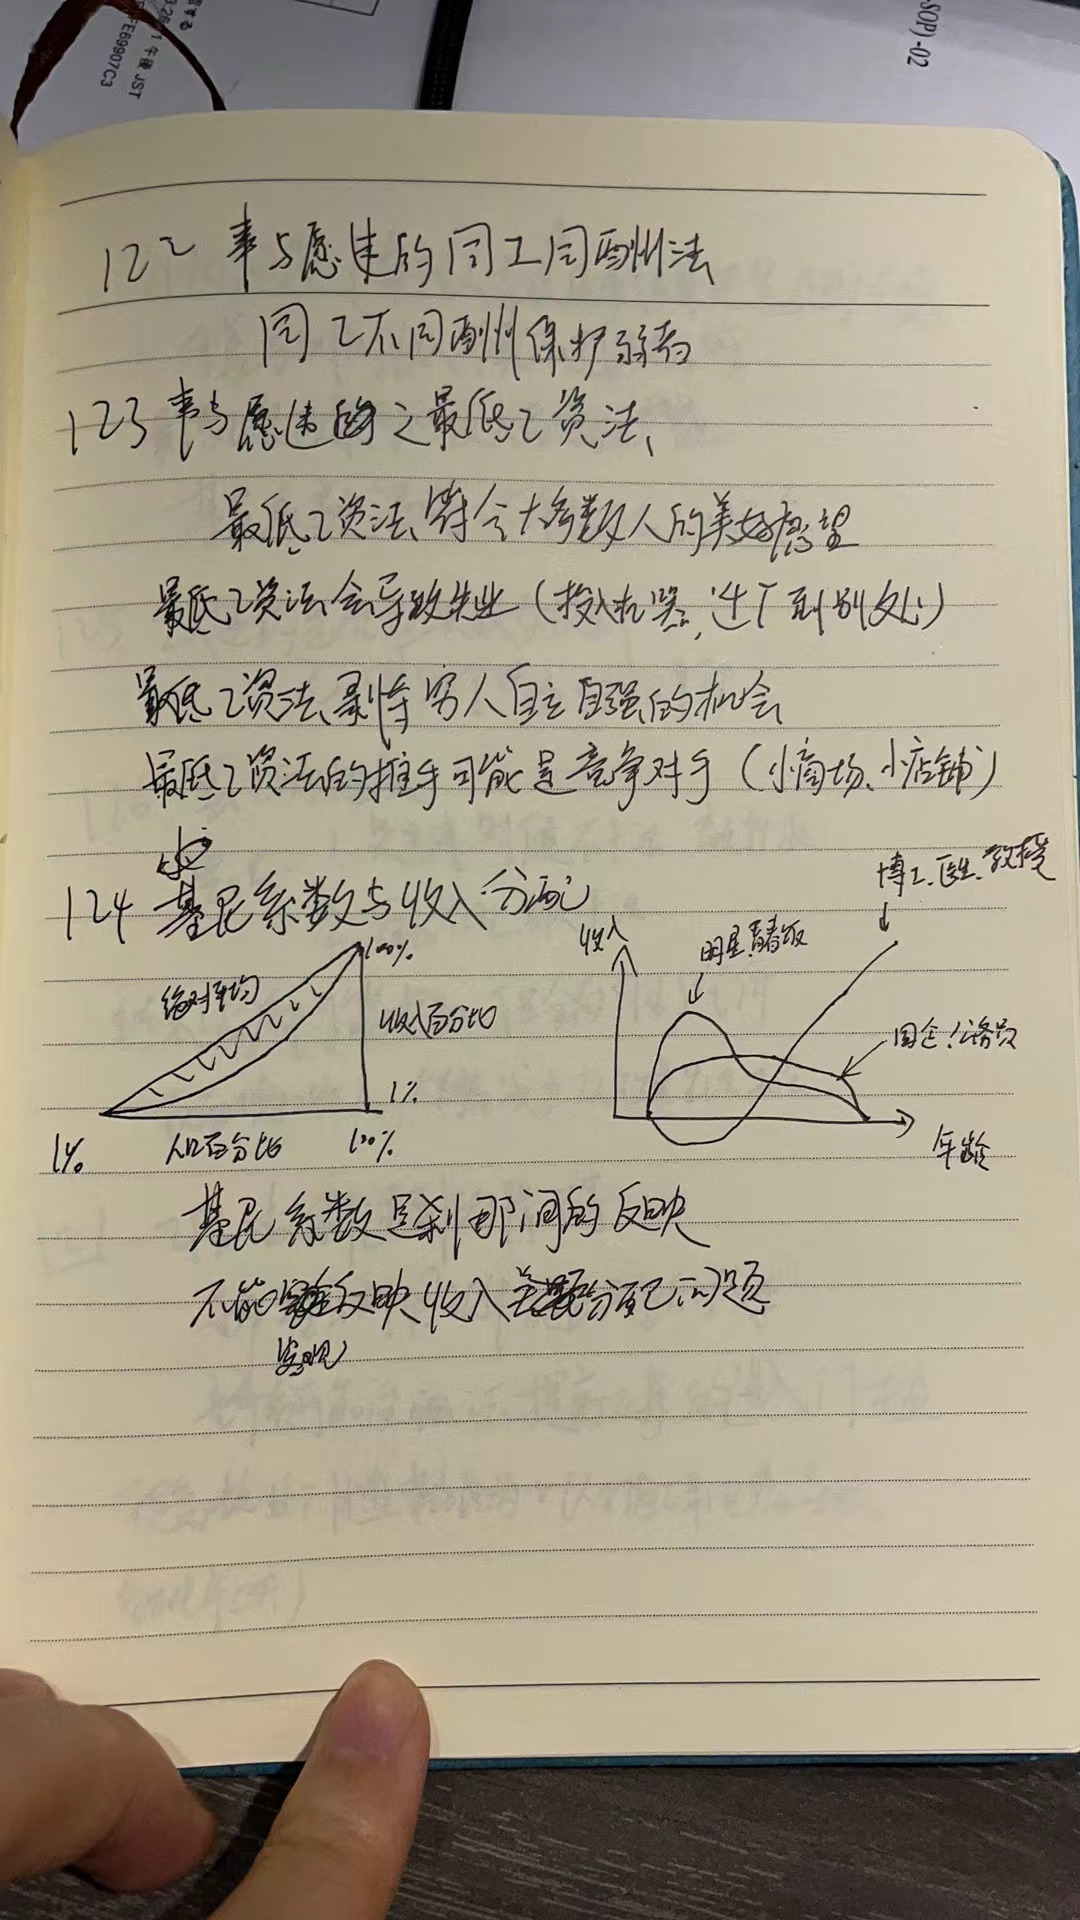 FE69907C3
SOP)-02
122 事与愿违的同工同酬法
同工不同酬保护弱者
123 事与愿违的之最低工资法
最低工资法符合大多数人的美好愿望
最低工资法会导致失业(投入机器,迁厂到别处)
最低工资法剥夺穷人自立自强的机会
最低工资法的推手可能是竞争对手(小商场、小店铺)
124 基尼系数与收入分配
100%
绝对平均
收入百分比
1%
1%
人口百分比
100%
收入
明星青春饭
博士、医生、教授
国企、公务员
年龄
基尼系数是刹那间的反映
不能反映收入分配问题
客观